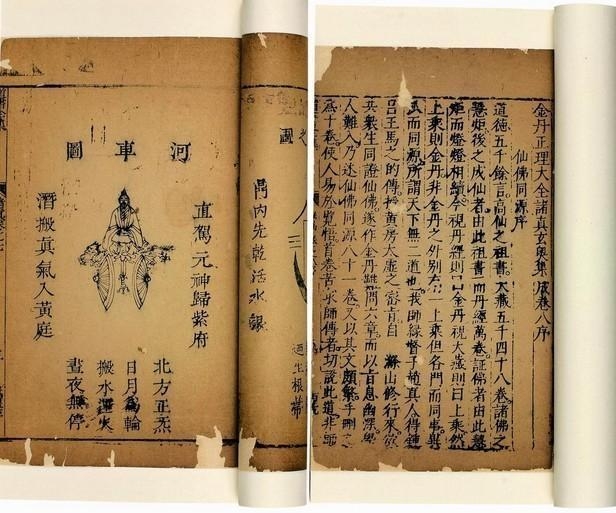 河車圖
直駕元神歸紫府
潛搬真氣入黃庭
北方正炁
日月為輪
搬水運火
晝夜無停
圖
門內先乾活水銀
金丹正理大全諸真玄奧集成卷八序
仙佛同源序
道德五千餘言高仙之祖書大藏五千四十八卷諸佛之
慧炬後之成仙者由此祖書而丹經萬卷證佛者由此慧
炬而燈燈相續今視丹經則曰金丹視大藏則曰上乘然
上乘則金丹非金丹之外別有一上乘但各門而同事異
而同源所謂天下無二道也我師緣督子趙真人得鍾
呂王馬之的傳
共衆生同證仙佛遂作金丹難問六章而以言息幽深學
人難入乃述仙佛同源八十一卷又以其文頗繁手刪之
為十卷使人易於覽悟首卷苦求師傳者切說此道非師